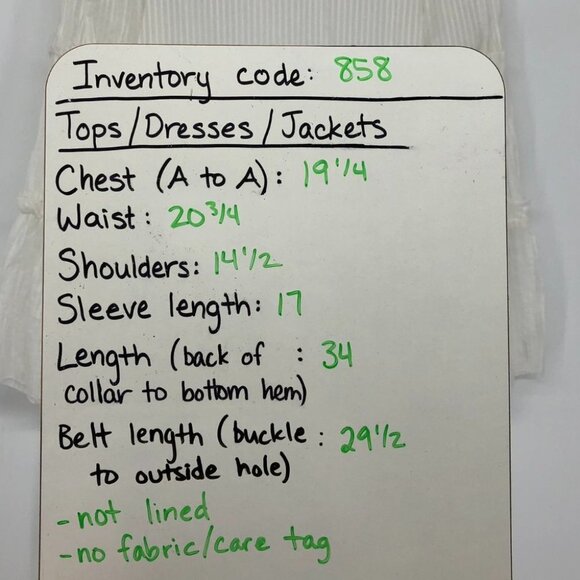 Inventory code: 858
Tops/Dresses/Jackets
Chest (A to A): 19 1/4
Waist: 20 3/4
Shoulders: 14 1/2
Sleeve length: 17
Length (back of : 34
collar to bottom hem)
Belt length (buckle : 29 1/2
to outside hole)
-not lined
-no fabric/care tag